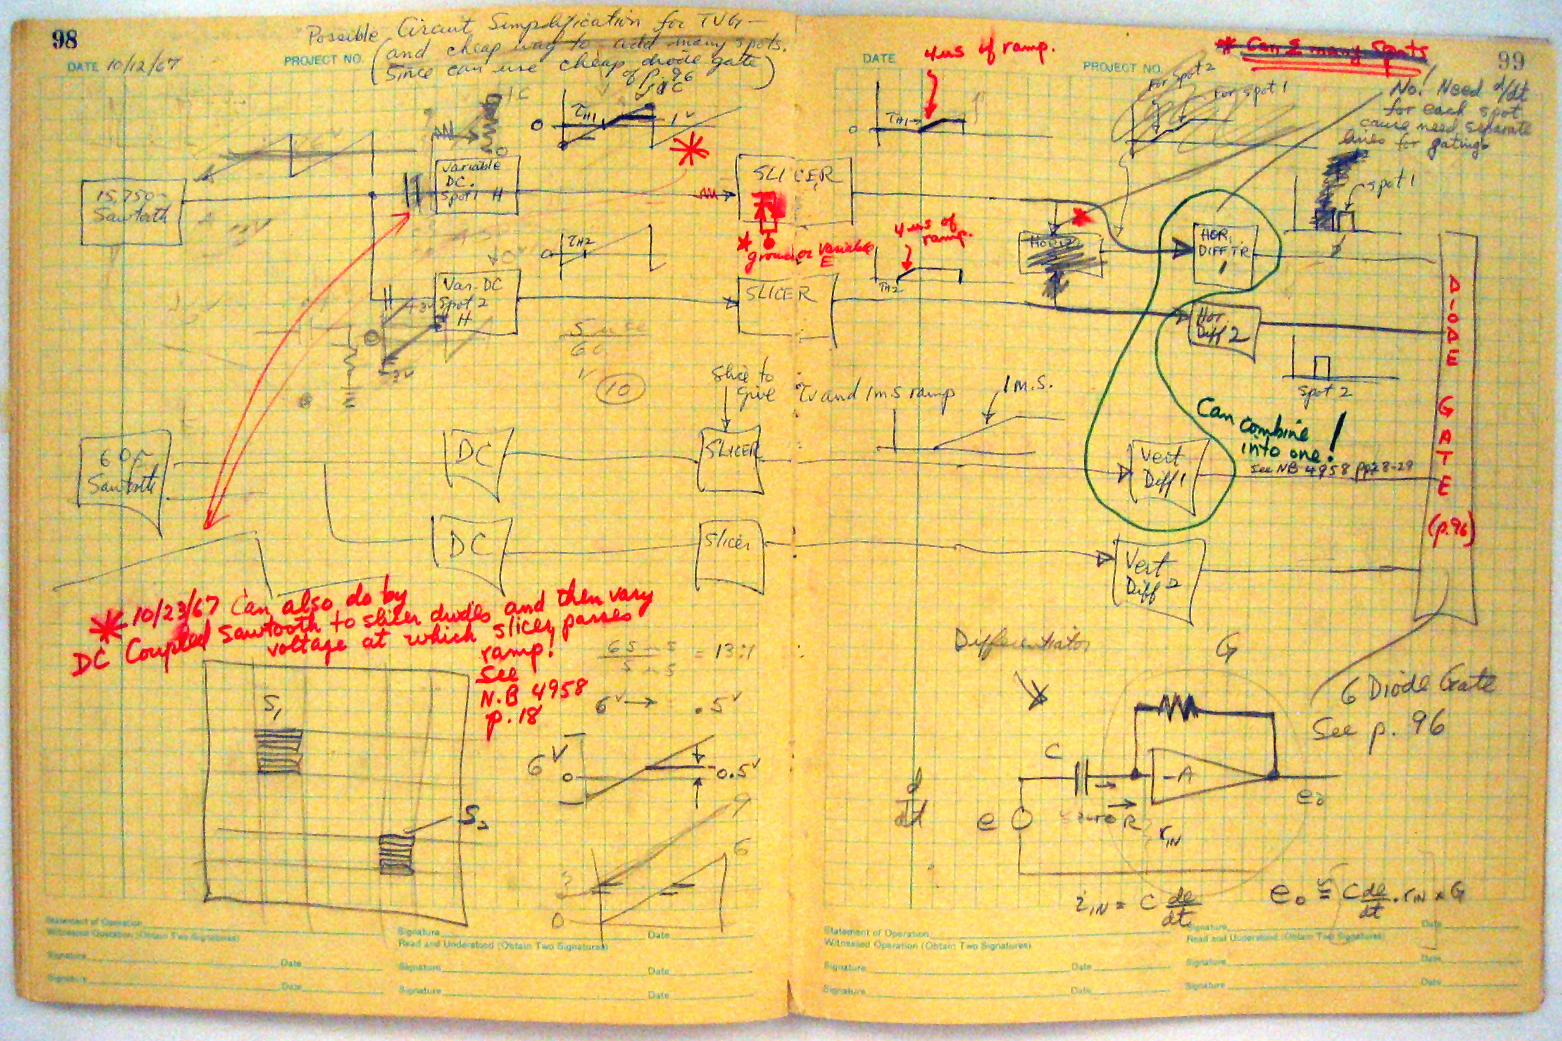 98
DATE 10/12/67
PROJECT NO.
Possible Circuit Simplification for TVG—
(and cheap way to add many spots.
Since can use cheap diode gate
of p. 96)
15,750~
Sawtooth
Variable
DC.
Spot 1 H
Var. DC
Spot 2
H
TH1
0
1V
TH2
0
SLICER
* ground or variable
E
SLICER
10
60~
Sawtooth
DC
DC
Slice to
give
SLICER
Slicer
* 10/23/67 Can also do by
DC Coupled Sawtooth to slicer diodes and then vary
voltage at which slicer passes
ramp!
See
N.B 4958
p. 18
= 13:1
6V → .5V
S1
S2
6V
0
0.5V
6
0
Statement of Operation
Witnessed Operation (Obtain Two Signatures)
Signature
Date
Signature
Date
Signature
Date
Read and Understood (Obtain Two Signatures)
Signature
Date
Signature
Date
99
DATE
PROJECT NO.
4 us of ramp.
* Can Σ many Spots
No! Need d/dt
for each spot
cause need separate
lines for gating
For spot 2
For spot 1
TH1
0
4 us of
ramp.
TH2
Hor 2
HOR.
DIFF'TR
1
Hor
Diff 2
Spot 1
Spot 2
Tv and 1ms ramp
1 M.S.
Can combine
into one!
See NB 4958 pp 28-29
Vert
Diff 1
Vert
Diff 2
DIODE GATE (p. 96)
Differentiator
G
6 Diode Gate
See p. 96
d/dt
C
e
-A
R
rIN
eo
iIN = C de/dt
eo ≅ C de/dt · rIN × G
Statement of Operation
Witnessed Operation (Obtain Two Signatures)
Signature
Date
Signature
Date
Signature
Date
Read and Understood (Obtain Two Signatures)
Signature
Date
Signature
Date